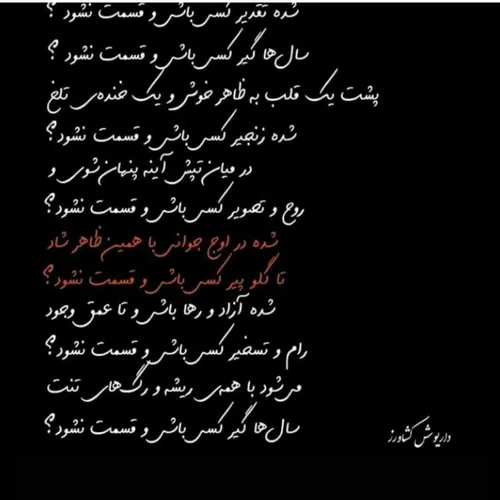 شده تقدیر کسی باشی و قسمت نشود ؟
سال‌ها گیر کسی باشی و قسمت نشود ؟
پشت یک قلب به ظاهر خوش و یک خنده‌ی تلخ
شده زنجیر کسی باشی و قسمت نشود؟
در میان تپش آینه پنهان شوی و
روح و تصویر کسی باشی و قسمت نشود؟
شده در اوج جوانی با همین ظاهر شاد
تا گلو پیر کسی باشی و قسمت نشود؟
شده آزاد و رها باشی و تا عمق وجود
رام و تسخیر کسی باشی و قسمت نشود؟
می‌شود با همه‌ی ریشه و رگ‌های تنت
سال‌ها گیر کسی باشی و قسمت نشود؟
داریوش کشاورز